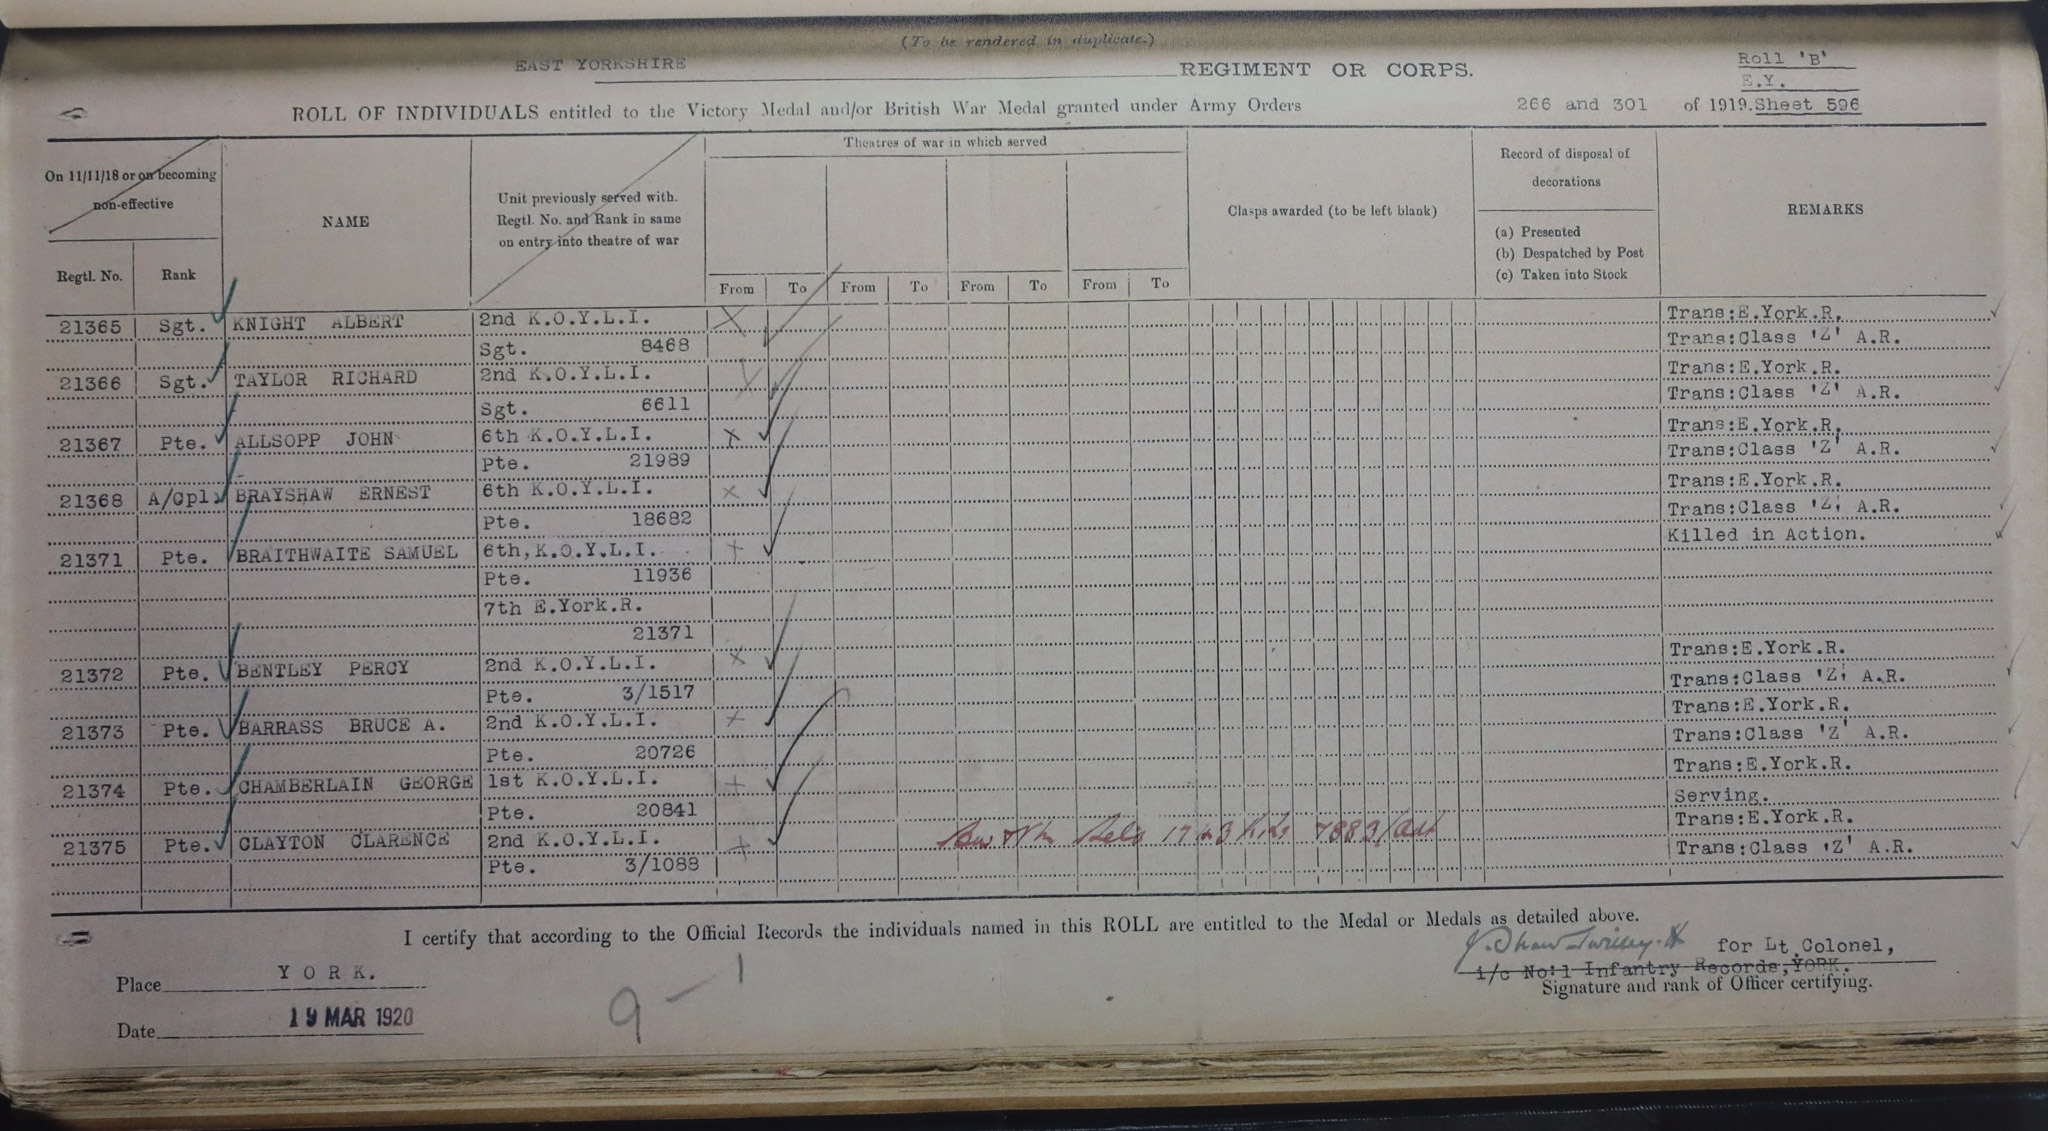 (To be rendered in duplicate.)
EAST YORKSHIRE REGIMENT OR CORPS. Roll 'B'
E.Y.
ROLL OF INDIVIDUALS entitled to the Victory Medal and/or British War Medal granted under Army Orders 266 and 301 of 1919. Sheet 596
On 11/11/18 or on becoming non-effective
NAME
Unit previously served with.
Regtl. No. and Rank in same
on entry into theatre of war
Theatres of war in which served
Clasps awarded (to be left blank)
Record of disposal of
decorations
(a) Presented
(b) Despatched by Post
(c) Taken into Stock
REMARKS
Regtl. No. Rank From To From To From To From To
21365 Sgt. KNIGHT ALBERT 2nd K.O.Y.L.I. Trans:E.York.R.
Sgt. 8468 Trans:Class 'Z' A.R.
21366 Sgt. TAYLOR RICHARD 2nd K.O.Y.L.I. Trans:E.York.R.
Sgt. 6611 Trans:Class 'Z' A.R.
21367 Pte. ALLSOPP JOHN 6th K.O.Y.L.I. Trans:E.York.R.
Pte. 21989 Trans:Class 'Z' A.R.
21368 A/Cpl. BRAYSHAW ERNEST 6th K.O.Y.L.I. Trans:E.York.R.
Pte. 18682 Trans:Class 'Z' A.R.
21371 Pte. BRAITHWAITE SAMUEL 6th, K.O.Y.L.I. Killed in Action.
Pte. 11936
7th E.York.R.
21371
21372 Pte. BENTLEY PERCY 2nd K.O.Y.L.I. Trans:E.York.R.
Pte. 3/1517 Trans:Class 'Z' A.R.
21373 Pte. BARRASS BRUCE A. 2nd K.O.Y.L.I. Trans:E.York.R.
Pte. 20726 Trans:Class 'Z' A.R.
21374 Pte. CHAMBERLAIN GEORGE 1st K.O.Y.L.I. Trans:E.York.R.
Pte. 20841 Serving.
21375 Pte. CLAYTON CLARENCE 2nd K.O.Y.L.I. Trans:E.York.R.
Pte. 3/1088 Trans:Class 'Z' A.R.
I certify that according to the Official Records the individuals named in this ROLL are entitled to the Medal or Medals as detailed above.
for Lt.Colonel,
i/c No:1 Infantry Records, YORK.
Signature and rank of Officer certifying.
Place YORK.
Date 19 MAR 1920
9 - 1